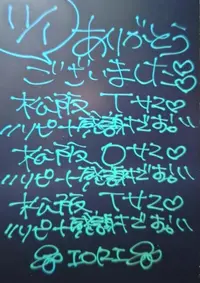 ありがとう
ございました♡
松阪 Tサン♡
リピート感謝です。
松阪 Oサン♡
リピート感謝です。
松阪 Tサン♡
リピート感謝です。
IORI